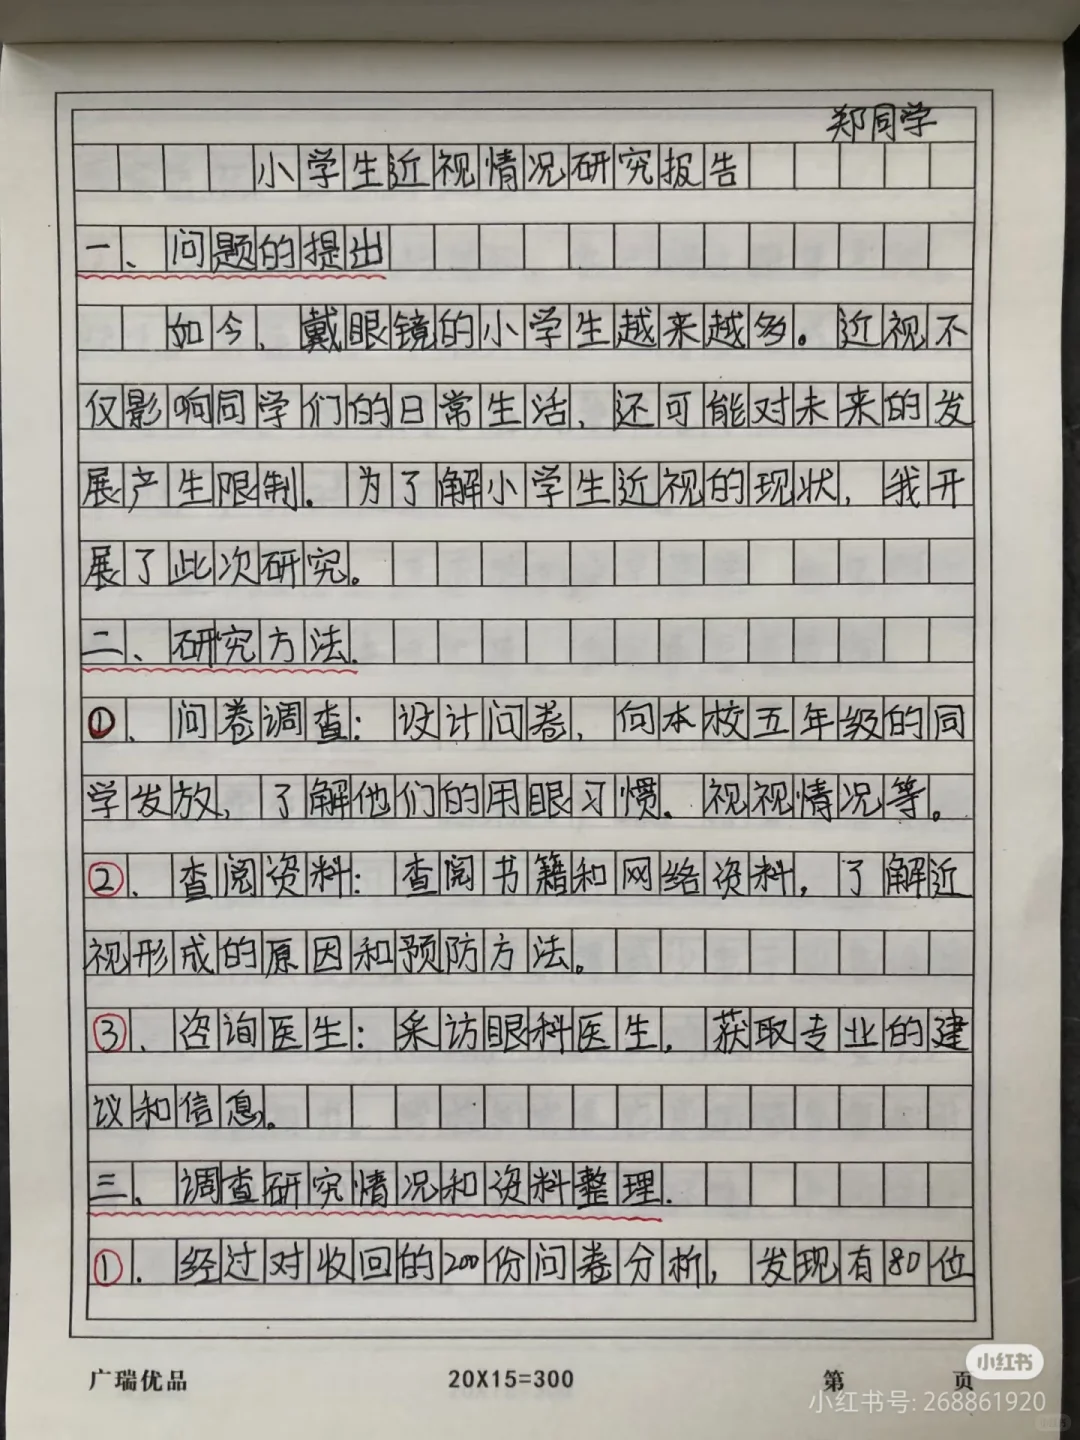 郑同学
小学生近视情况研究报告
一、问题的提出
如今，戴眼镜的小学生越来越多。近视不
仅影响同学们的日常生活，还可能对未来的发
展产生限制。为了解小学生近视的现状，我开
展了此次研究。
二、研究方法.
①、问卷调查：设计问卷，向本校五年级的同
学发放，了解他们的用眼习惯、视视情况等。
②、查阅资料：查阅书籍和网络资料，了解近
视形成的原因和预防方法。
③、咨询医生：采访眼科医生，获取专业的建
议和信息。
三、调查研究情况和资料整理.
①.经过对收回的200份问卷分析，发现有80位
广瑞优品 20X15=300 第 页
小红书
小红书号: 268861920